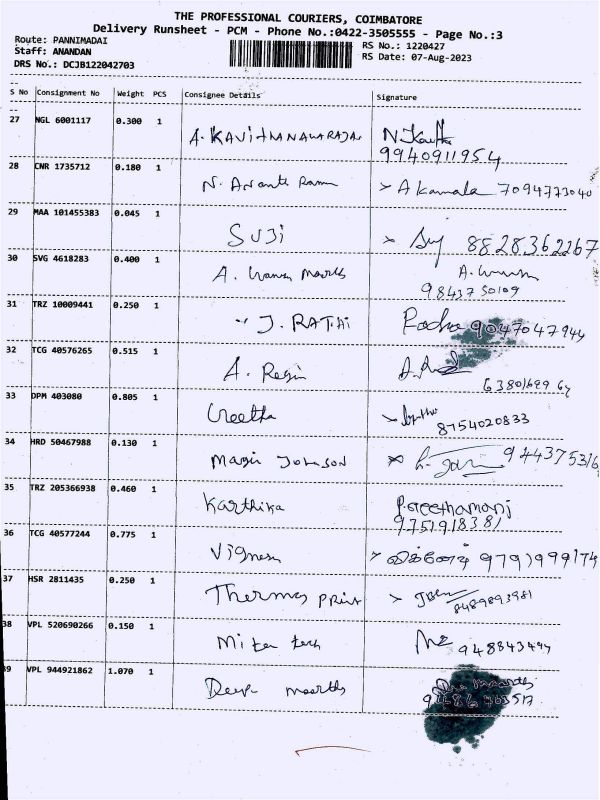 THE PROFESSIONAL COURIERS, COIMBATORE
Delivery Runsheet - PCM - Phone No.:0422-3505555 - Page No.:3
Route: PANNIMADAI
RS No.: 1220427
Staff: ANANDAN
RS Date: 07-Aug-2023
DRS No.: DCJB122042703
S No Consignment No Weight PCS Consignee Details Signature
27 NGL 6001117 0.300 1
9940911954
28 CNR 1735712 0.180 1 N. A Kamala 7094773040
29 MAA 101455383 0.045 1 SUJI 8828362267
30 SVG 4618283 0.400 1 A.
9843750109
31 TRZ 10009441 0.250 1 J. RATHI 9047047944
32 TCG 40576265 0.515 1 A. Regin
33 DPM 403080 0.805 1 Geetha
8754020833
34 HRD 50467988 0.130 1 Magic Johnson 944375316
35 TRZ 205366938 0.460 1 Karthika P. Geethamani
9751918381
36 TCG 40577244 0.775 1 Vignesh விக்னேஷ் 9791999174
37 HSR 2811435 0.250 1 Thermas print
8489893981
38 VPL 520690266 0.150 1 tech
39 VPL 944921862 1.070 1 Deepa